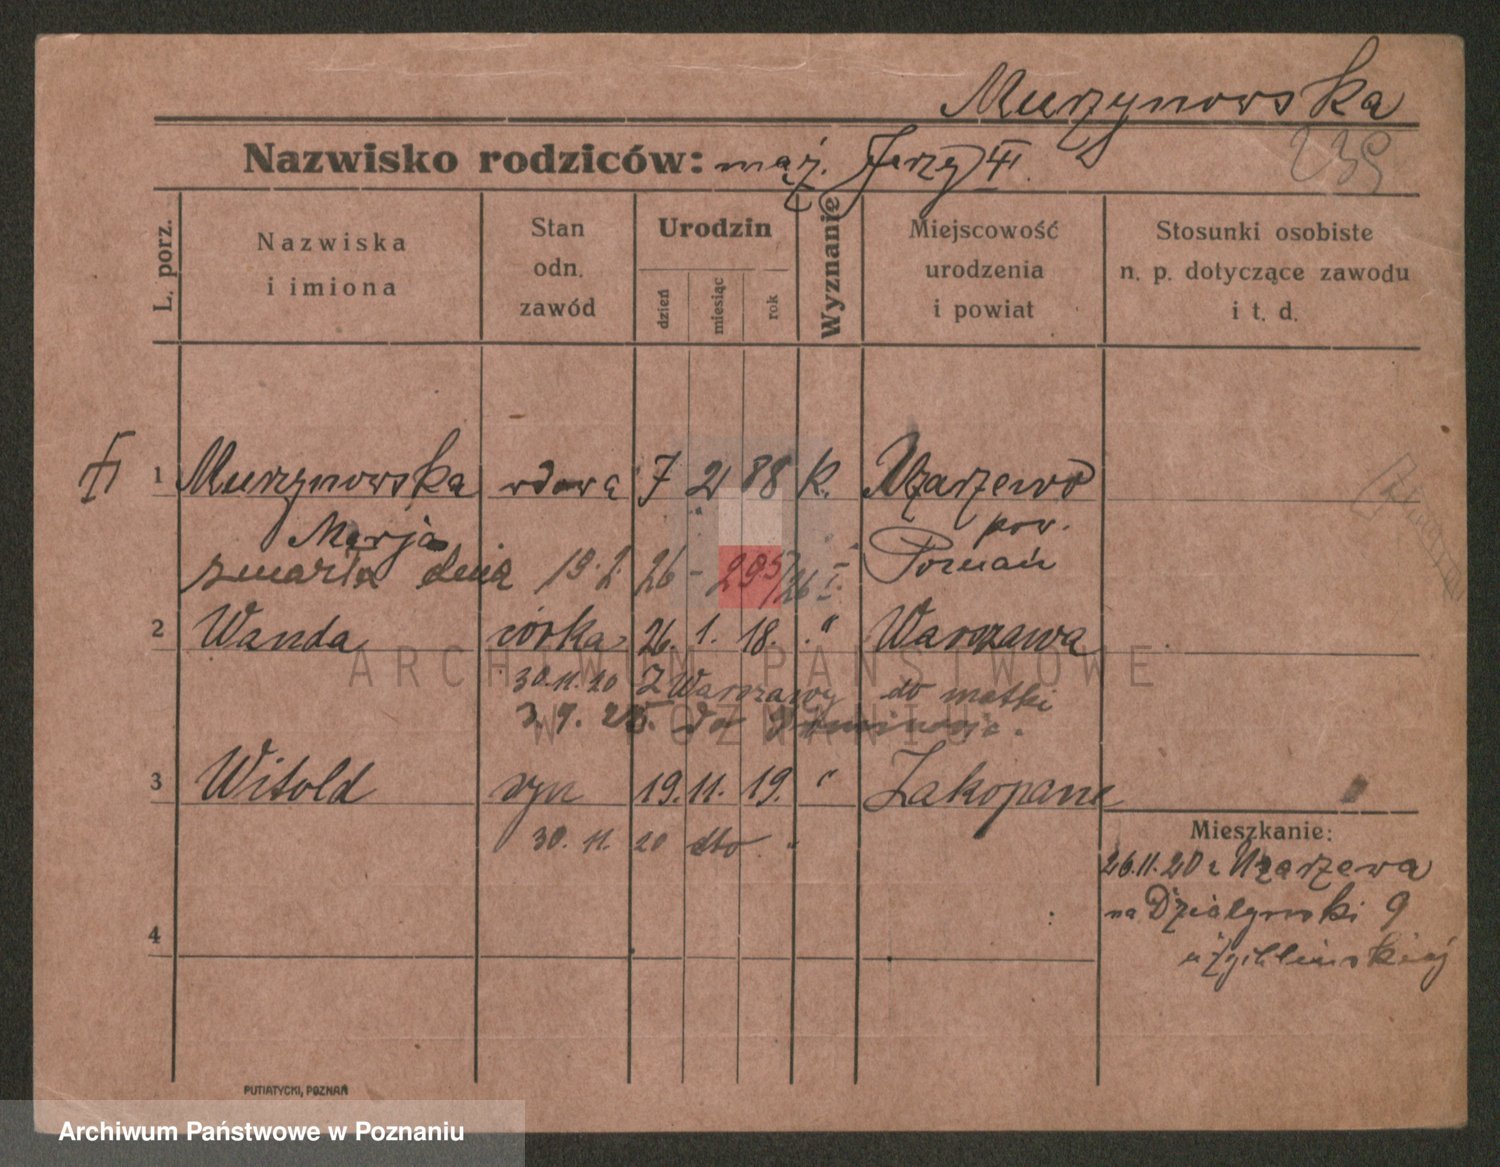 Murzynowska
239
Nazwisko rodziców: mąż. Jerzy
L. porz.
Nazwiska i imiona
Stan odn. zawód
Urodzin
dzień
miesiąc
rok
Wyznanie
Miejscowość urodzenia i powiat
Stosunki osobiste n. p. dotyczące zawodu i t. d.
1 Murzynowska wdowa 7 2 88 k. Uzarzewo
Marja pow.
zmarła dnia 19. 2. 26 - 295/26 I. Poznań
2 Wanda córka 26. 1. 18. " Warszawa
30.11.20 Z Warszawy do matki
3.9.25. do
3 Witold syn 19. 11. 19. " Zakopane
30. 11. 20 dto "
Mieszkanie:
26.11.20 z Uzarzewa
na Działyński 9
u
4
PUTIATYCKI, POZNAŃ
ARCHIWUM PAŃSTWOWE
W POZNANIU
Archiwum Państwowe w Poznaniu